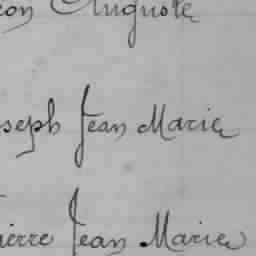 eon Auguste
seph Jean Marie
ierre Jean Marie